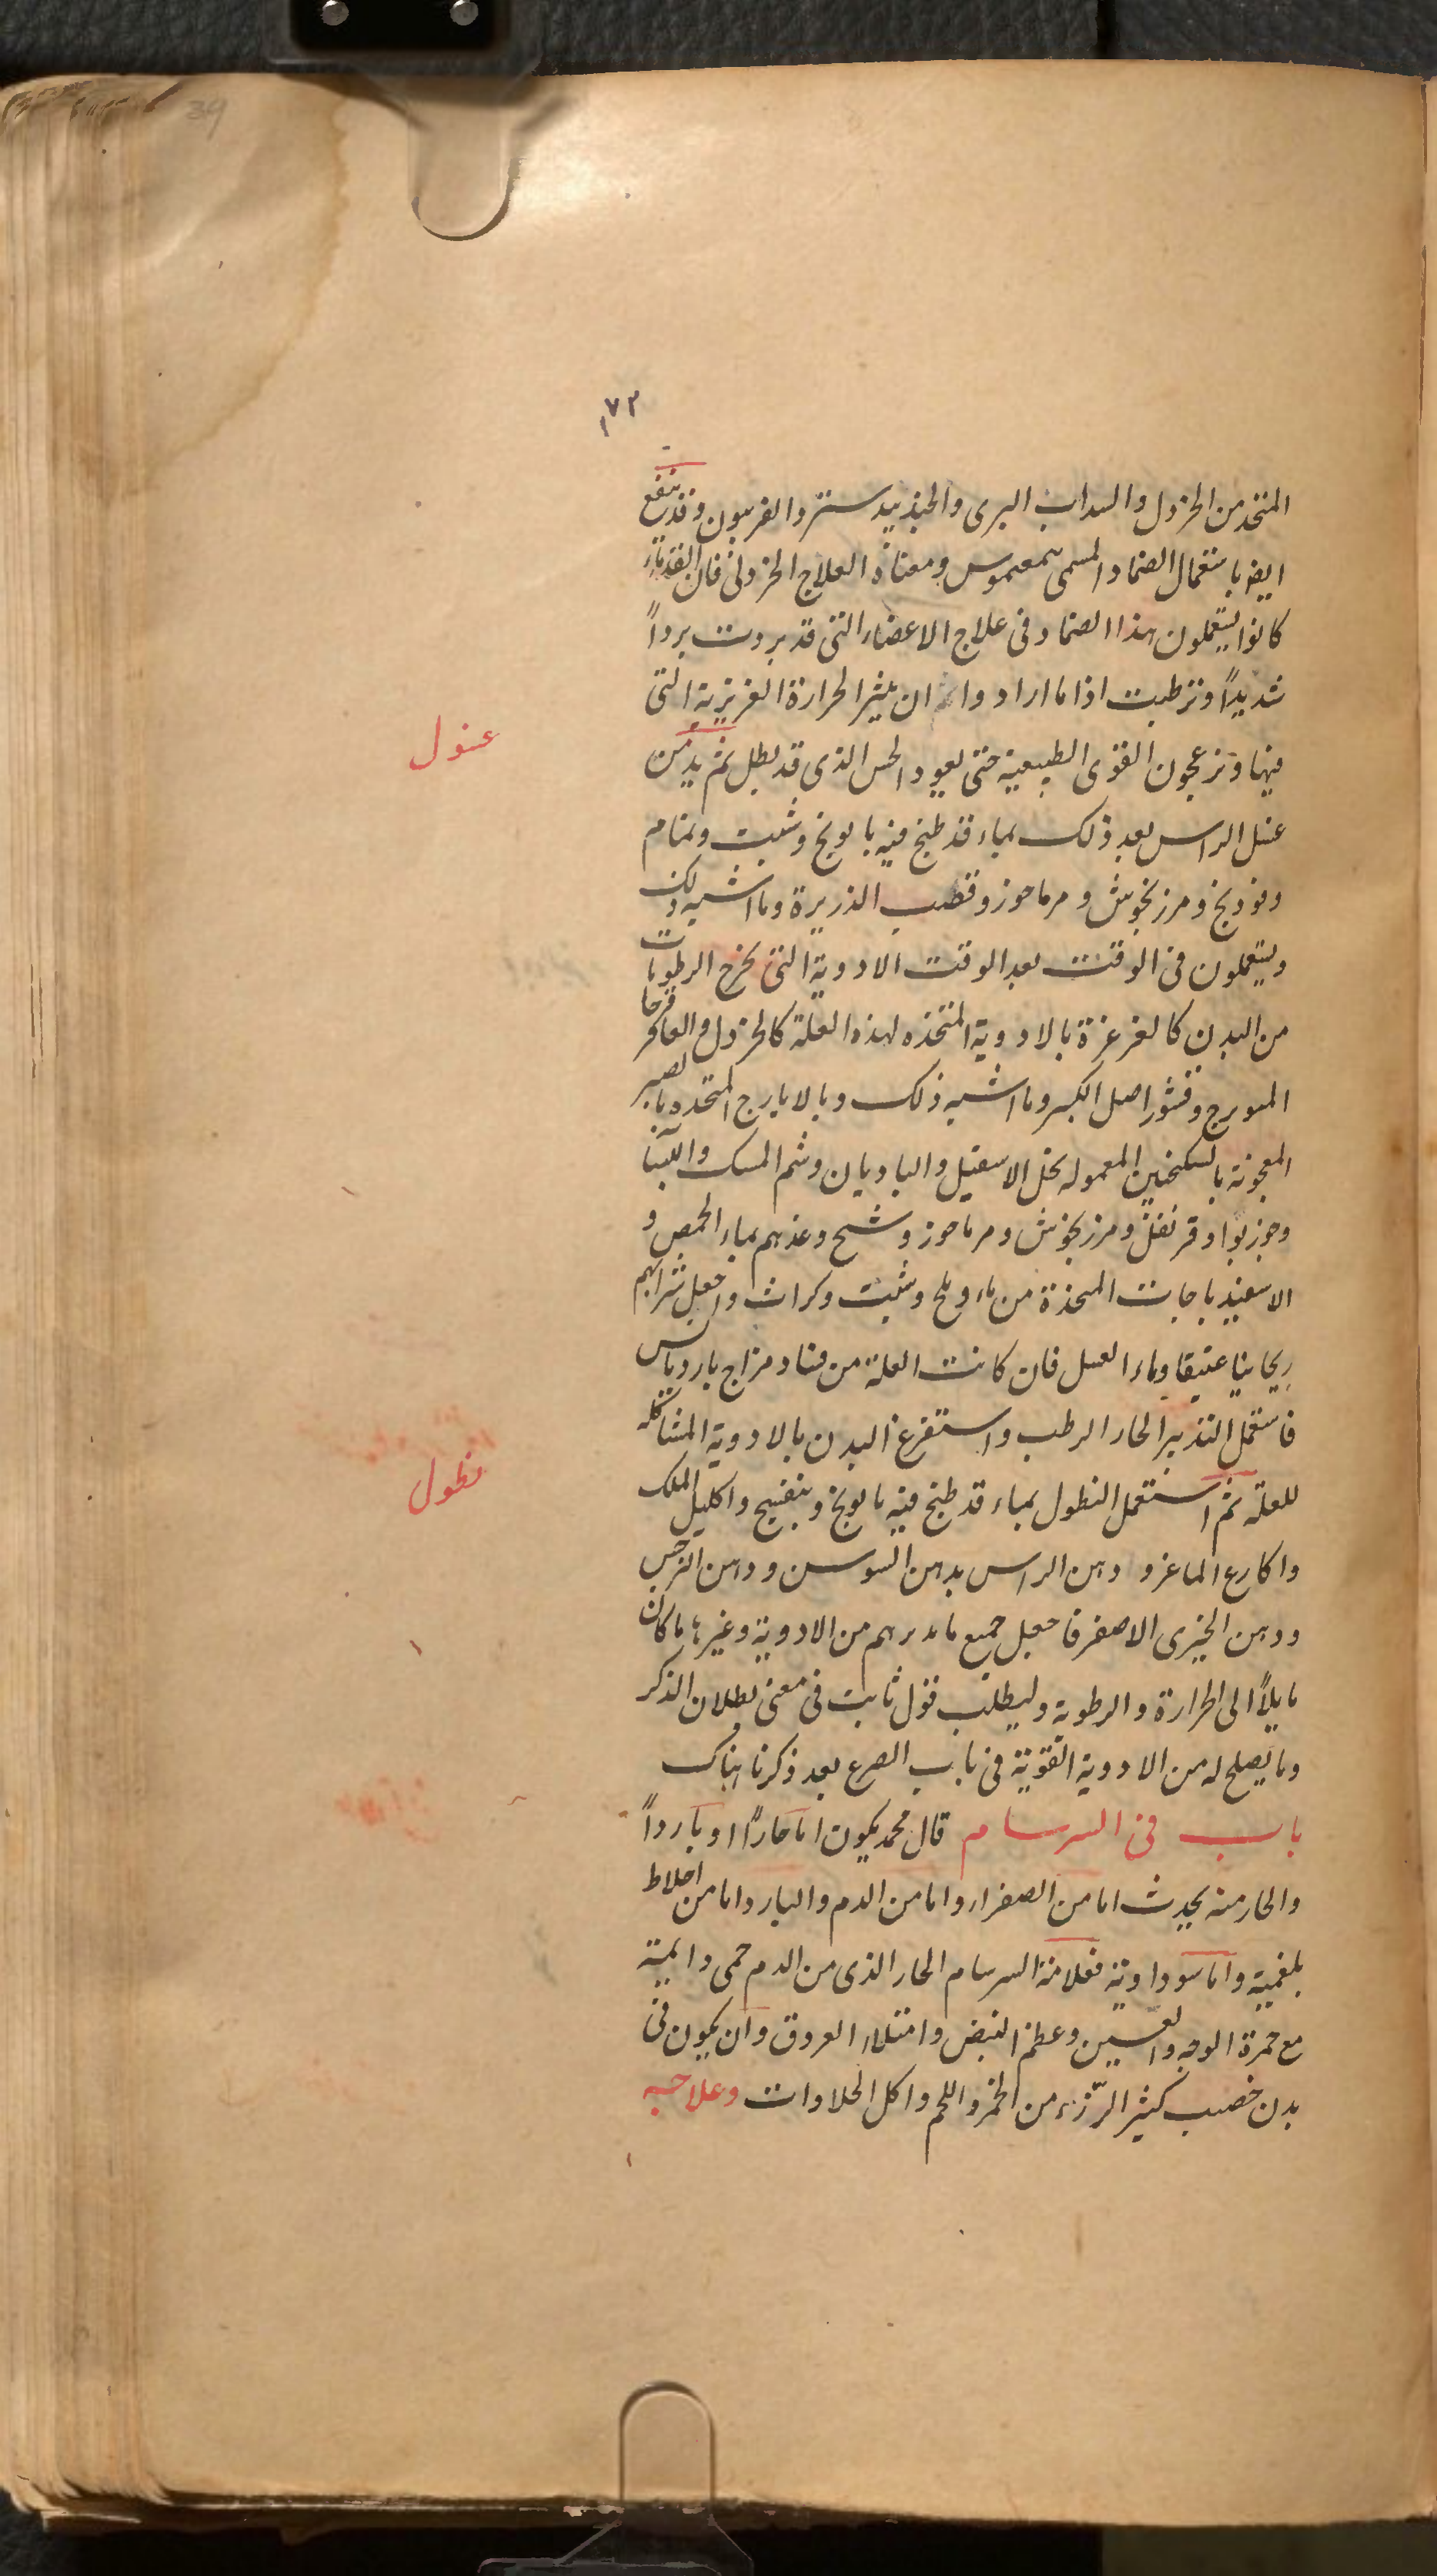 39
١٧٢
المتخذ من الخردل والسداب البرى والجندبيدستر والفربيون وقد ينفع
ايضا باستعمال الضماد المسمى سمعموس ومعناه العلاج الخردلى فان القدماء
كانوا يستعملون هذا الضماد فى علاج الاعضاء التى قد بردت برداً
شديداً وترطبت اذا ما ارادوا ان يثير الحرارة الغريزية التى
فيها وتزعجون القوى الطبيعية حتى يعود الحس الذى قد بطل ثم يدمن
غسل الراس بعد ذلك بماء قد طبخ فيه بابونج وشبت ونمام
وفودنج ومرزنجوش ومرماحوز وقصب الذريرة وما اشبه ذلك
ويستعملون فى الوقت بعد الوقت الادوية التى تخرج الرطوبات
من البدن كالغرغرة بالادوية المتخذه لهذه العلة كالخردل والعاقرقرحا
الميويزج وقشور اصل الكبر وما اشبه ذلك وبالايارج المتخذه بالصبر
المعجونة بالسكنجبين المعموله بخل الاسقيل والباديان وشم المسك واللبنا
وجوزبوا وقرنفل ومرزنجوش ومرماحوز وشيح وغذهم بماء الحمص و
الاسفيدباجات المتخذة من ماء وملح وشبت وكراث واجعل شرابهم
ريحانيا عتيقا وماء العسل فان كانت العلة من فساد مزاج بارد يابس
فاستعمل التدبير الحار الرطب واستفرغ البدن بالادوية المشاكله
للعلة ثم استعمل النطول بماء قد طبخ فيه بابونج وبنفسج واكليل الملك
واكارع الماعز و دهن الراس بدهن السوسن ودهن النرجس
ودهن الخيرى الاصفر فاجعل جميع ما تدبرهم من الادوية وغيرها ما كان
مايلاً الى الحرارة والرطوبة وليطلب قول ثابت فى معنى بطلان الذكر
وما يصلح له من الادوية القوية فى باب الصرع بعد ذكرنا هناك
باب فى السرسام قال محمد يكون اما حاراً او بارداً
والحار منه يحدث اما من الصفراء واما من الدم والبارد اما من اخلاط
بلغمية واما سوداوية فعلامة السرسام الحار الذى من الدم حمى دايمية
مع حمرة الوجه والعينين وعظم النبض وامتلاء العروق وان يكون فى
بدن خصب كثير الرّزء من الخمر واللحم واكل الحلاوات وعلاجه
غسول
نطول